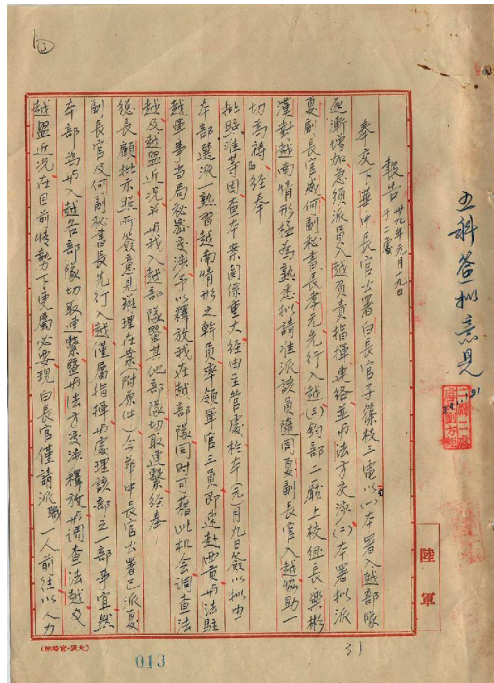 五科簽拟意見
報告 卅九年元月十九日
于二處
奉交下華中長官公署白長官子篠枝三電以(一)本署入越部隊
逐漸增加急須派員入越負責指揮連絡並與法方交涉(二)本署拟派
夏副長官威何副秘書長彥元先行入越(三)鈞部二廳上校組長興彬
漢對越南情形極為熟悉拟請准派該員隨同夏副長官入越協助一
切為禱經奉
批照准等因查本案関係重大經由主管處於本(元)月九日簽以拟由
本部選派一熟習越南情形之幹員率領軍官三員即速赴西貢與法駐
越軍事当局秘密交涉予以釋放我在越部隊同時可藉此机会調查法
越及越盟近況並与我入越部隊暨其他部隊切取連繫經奉
總長顧批示照所簽意見辦理在案(附原件)今華中長官公署已派夏
副長官及何副秘書長先行入越僅屬指揮與處理該部之一部事宜然
本部為與入越各部隊切取連繫暨與法方交涉釋放與調查法越及
越盟近況在目前情勢下更屬必要現白長官僅請派職一人前往以人力
陸軍
013
31